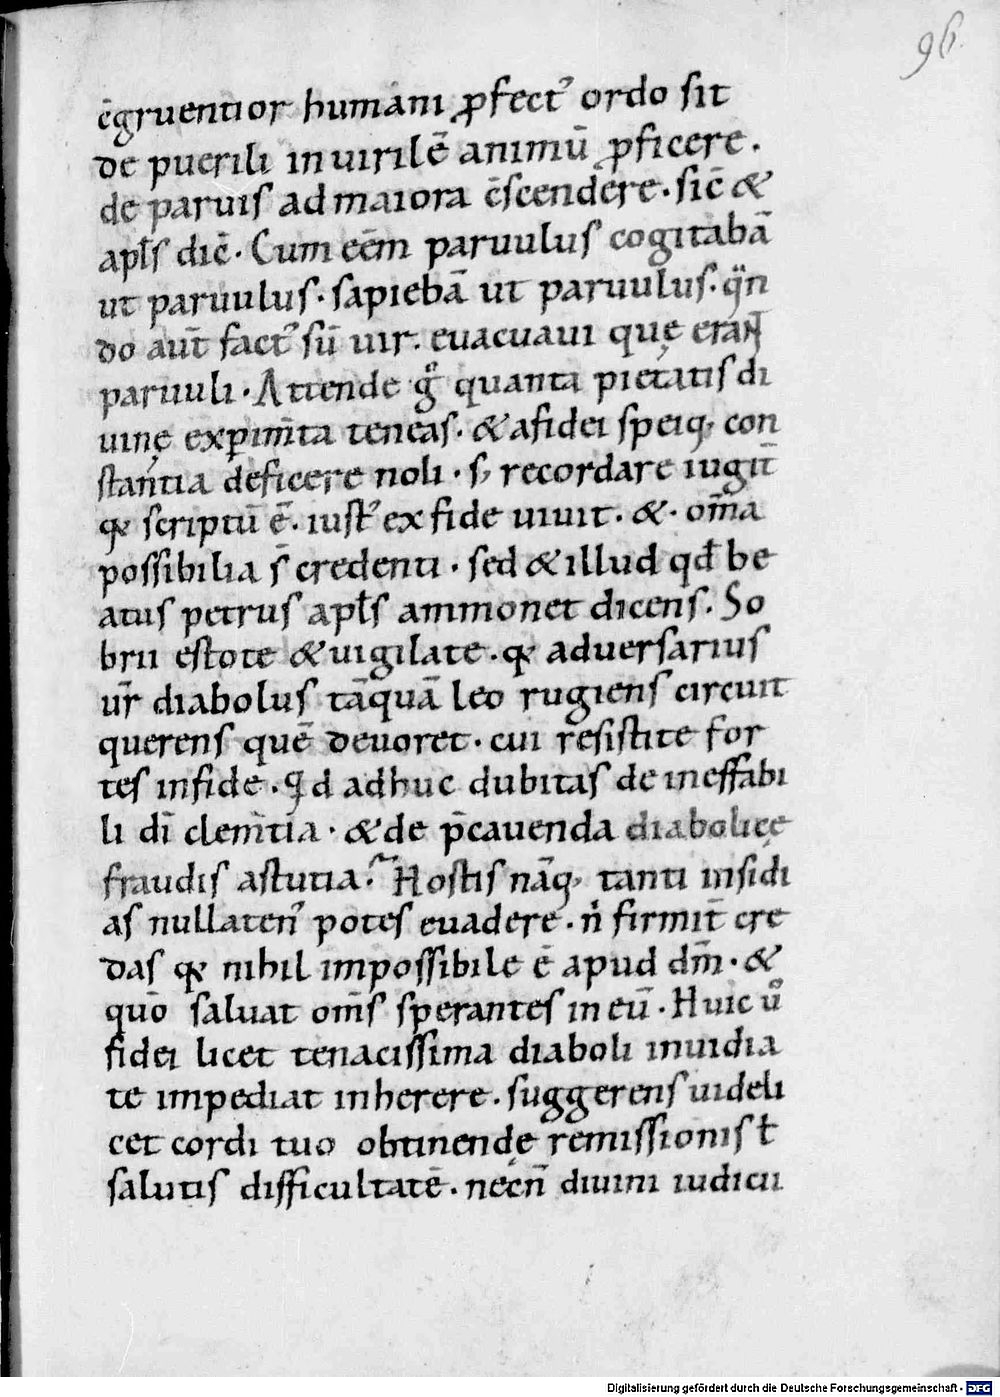 96.
c̄gruentior humani ꝓfect᾽ ordo sit
de puerili in uirilē animū ꝓficere.
de paruis ad maiora c̄scendere. sic̄ &
apl̄s dic̄. Cum eēm paruulus cogitabā
ut paruulus. sapiebā ut paruulus. qn̄
do aut̄ fact᾽ sū uir. euacuaui quę eran̄t
paruuli. Attende gͦ quanta pietatis di
uinę experim̄ta teneas. & a fidei speiq; con
stantia deficere noli. s; recordare iugit̄
qꝛ scriptū ē. iust᾽ ex fide uiuit. &. om̄a
possibilia s̄ credenti. sed & illud qđ be
atus petrus apl̄s ammonet dicens. So
brii estote & uigilate. qꝛ aduersarius
ur̄ diabolus tāquā leo rugiens circuit
querens quē deuoret. cui resistite for
tes in fide. Qͥd adhuc dubitas de ineffabi
li dī clem̄tia. & de p̄cauenda diabolicę
fraudis astutia? Hostis nāq; tanti insidi
as nullaten᾽ potes euadere. nͥ firmit̄ cre
das qꝛ nihil impossibile ē apud dm̄. &
quō saluat om̄s sperantes in eū. Huic uͦ
fidei licet tenacissima diaboli inuidia
te impediat inherere. suggerens uideli
cet cordi tuo obtinendę remissionis ł
salutis difficultatē. necn̄ diuini iudicii
Digitalisierung gefördert durch die Deutsche Forschungsgemeinschaft - DFG